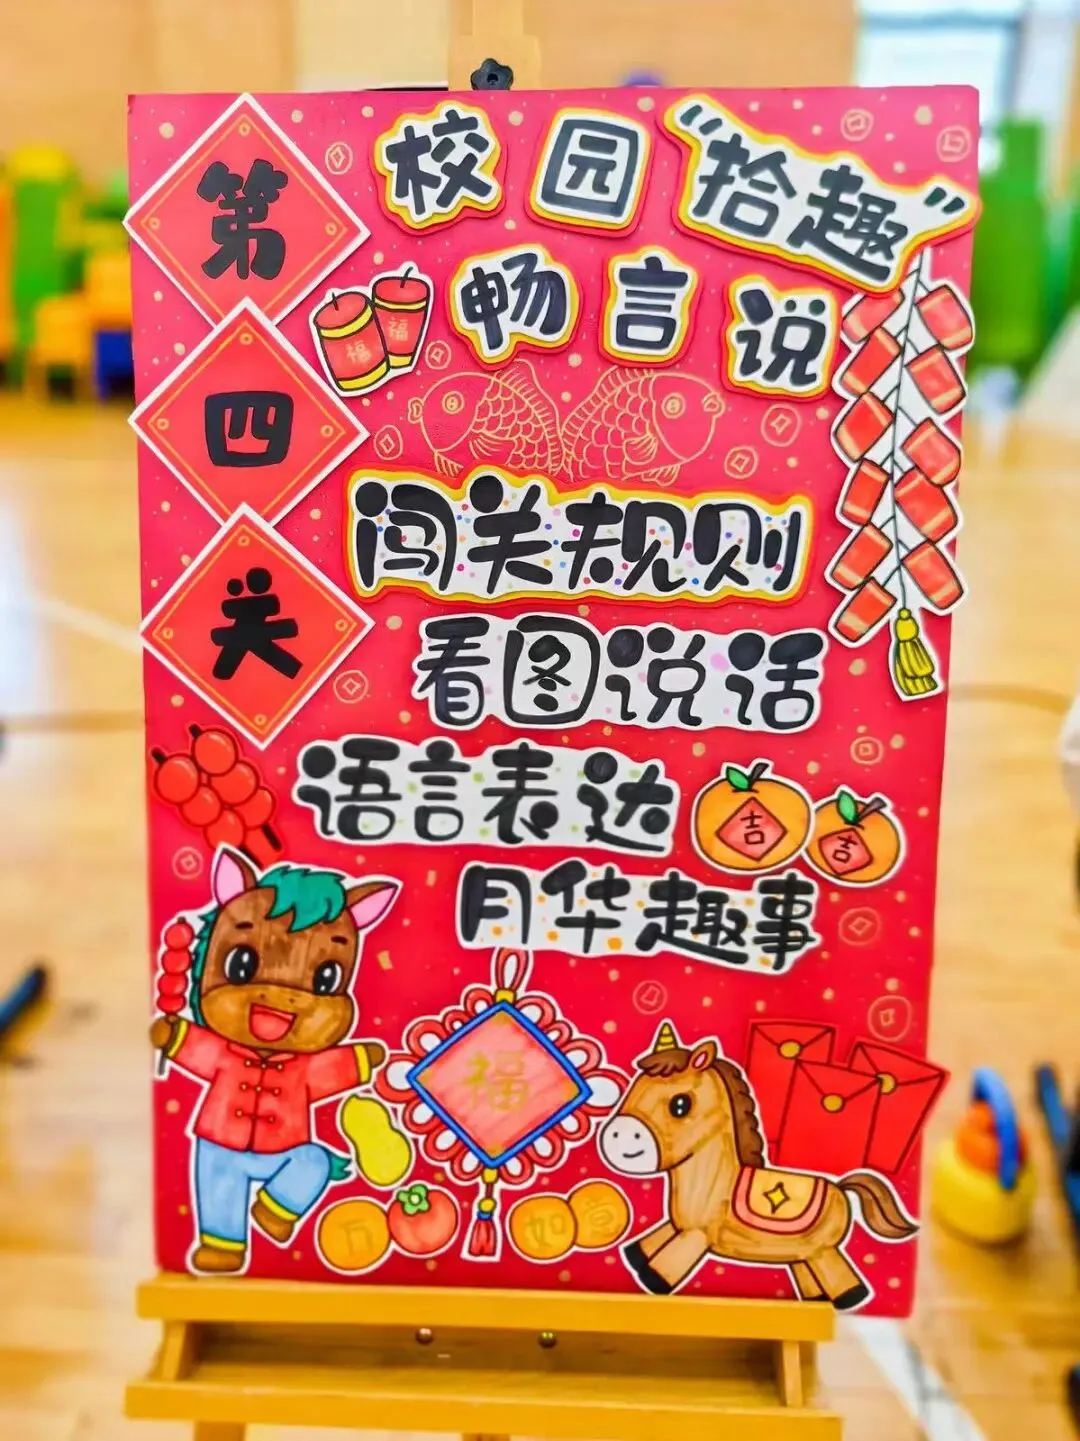 第四关
校园“拾趣”
畅言说
福 福
闯关规则
看图说话
语言表达
吉 吉
月华趣事
福
万 如意